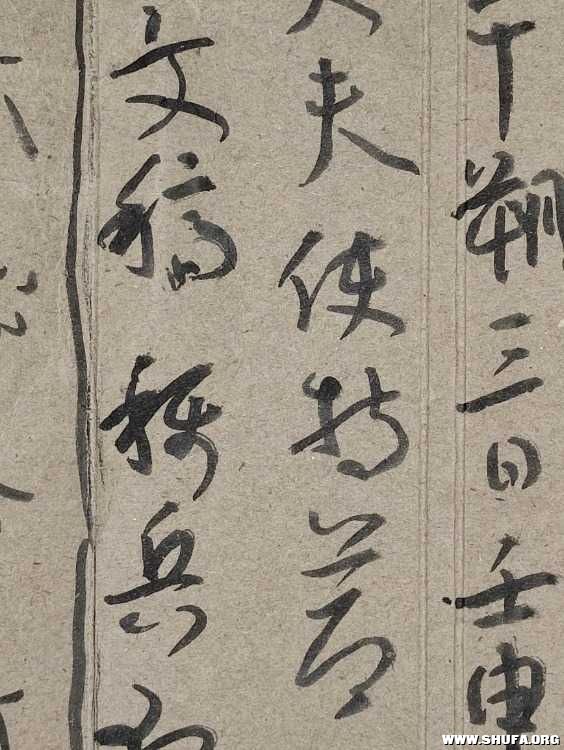 午朔三日壬申
大夫使持節
文稿稱兵
WWW.SHUFA.ORG